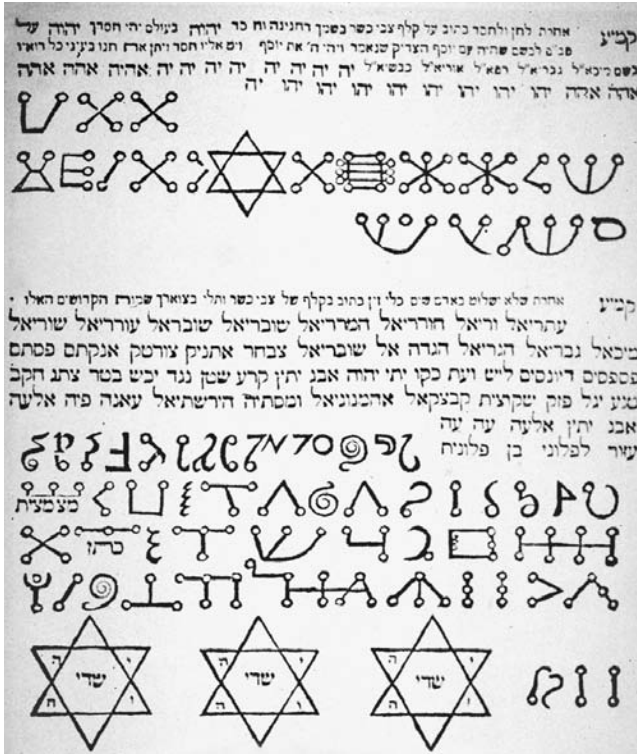 קמ״ע אחרת לחן ולחסד כתוב על קלף צבי כשר יהוה בעולם יהי חסדך יהוה עלי
לכשם שהיה עם יוסף הצדיק שנאמר ויהי ה' את יוסף ויט אליו חסד ויתן את חנו בעיני כל רואיו
בשם מיכא״ל גבריא״ל רפא״ל אוריא״ל כבשיא״ל יה יה יה יה יה יה יה אהיה אהה אהה
אהה אהה יהו יהו יהו יהו יהו יהו יהו יהו יה
קמ״ע אחרת שלא ישלוט באדם שום כלי זין כתוב בקלף של צבי כשר ותלי בצוארך שמות הקדושים האלו
עתריאל וריאל הוריאל המרריאל שובריאל שובראל עורריאל שוריאל
מיכאל גבריאל הגריאל הגדה אל שובריאל צבחר אתניק צורטק אנקתם פסתם
פספסים דיונסים ליש ועת כקו יתי יהוה אבג יתץ קרע שטן נגד יכש בטר צתג חקב
טנע יגל פזק שקוצית קבצקאל אהמנוניאל ומסתיה הירשתיאל עאנה פיה אלעה
אבג יתץ אלעה עה עה
עזור לפלוני בן פלונית
מצמצית
כוזו
ה י שדי ה ו
ה י שדי ה ו
ה י שדי ה ו